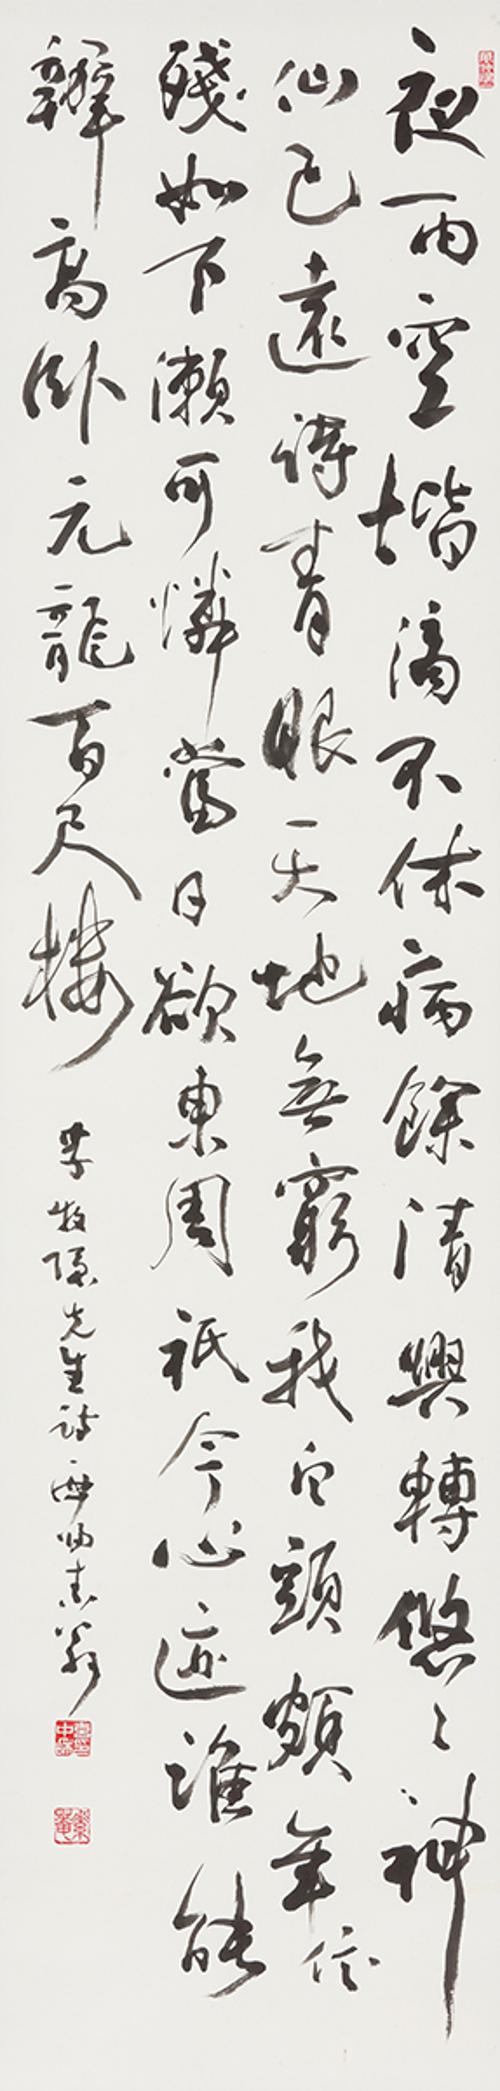 夜雨空堦滴不休病餘清興轉悠〻神
仙已遠詩青眼天地無窮我白頭頗年信
殘如下瀨可憐當日欲東周祇今心迹誰能
辨高臥元龍百尺樓
李牧隱先生詩